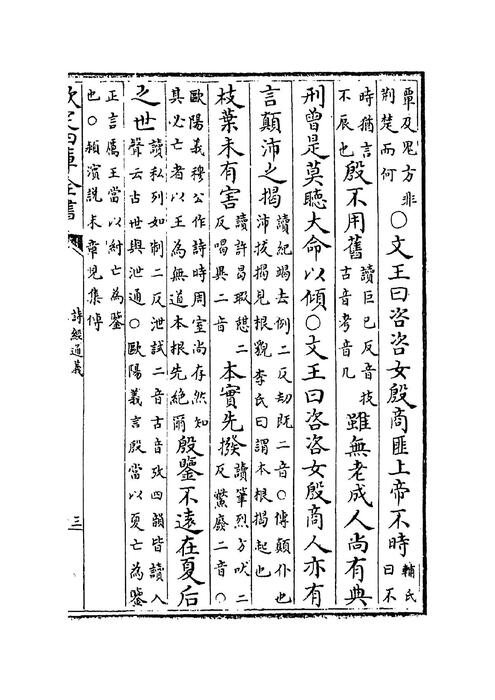 覃及鬼方非
荆楚而何
○文王曰咨咨女殷商匪上帝不時
輔氏
曰不
時猶言
不辰也
殷不用舊
讀巨已反音技
古音考音几
雖無老成人尚有典
刑曾是莫聽大命以傾○文王曰咨咨女殷商人亦有
言顛沛之揭
讀紀竭去例二反刼既二音○傳顛仆也
沛拔揭見根貌李氏曰謂本根揭起也
枝葉未有害
讀許曷瑕憩二
反喝異二音
本實先撥
讀筆烈方吠二
反鷩廢二音○
歐陽義穆公作詩時周室尚存然知
其必亡者以王為無道本根先絶爾
殷鑒不遠在夏后
之世
讀私列如制二反泄試二音古音攷四韻皆讀入
聲云古世與泄通○歐陽義言殷當以夏亡為鑒
正言厲王當以紂亡為鑒
也○頻濱說末章見集傳
欽定四庫全書
詩經通義
三